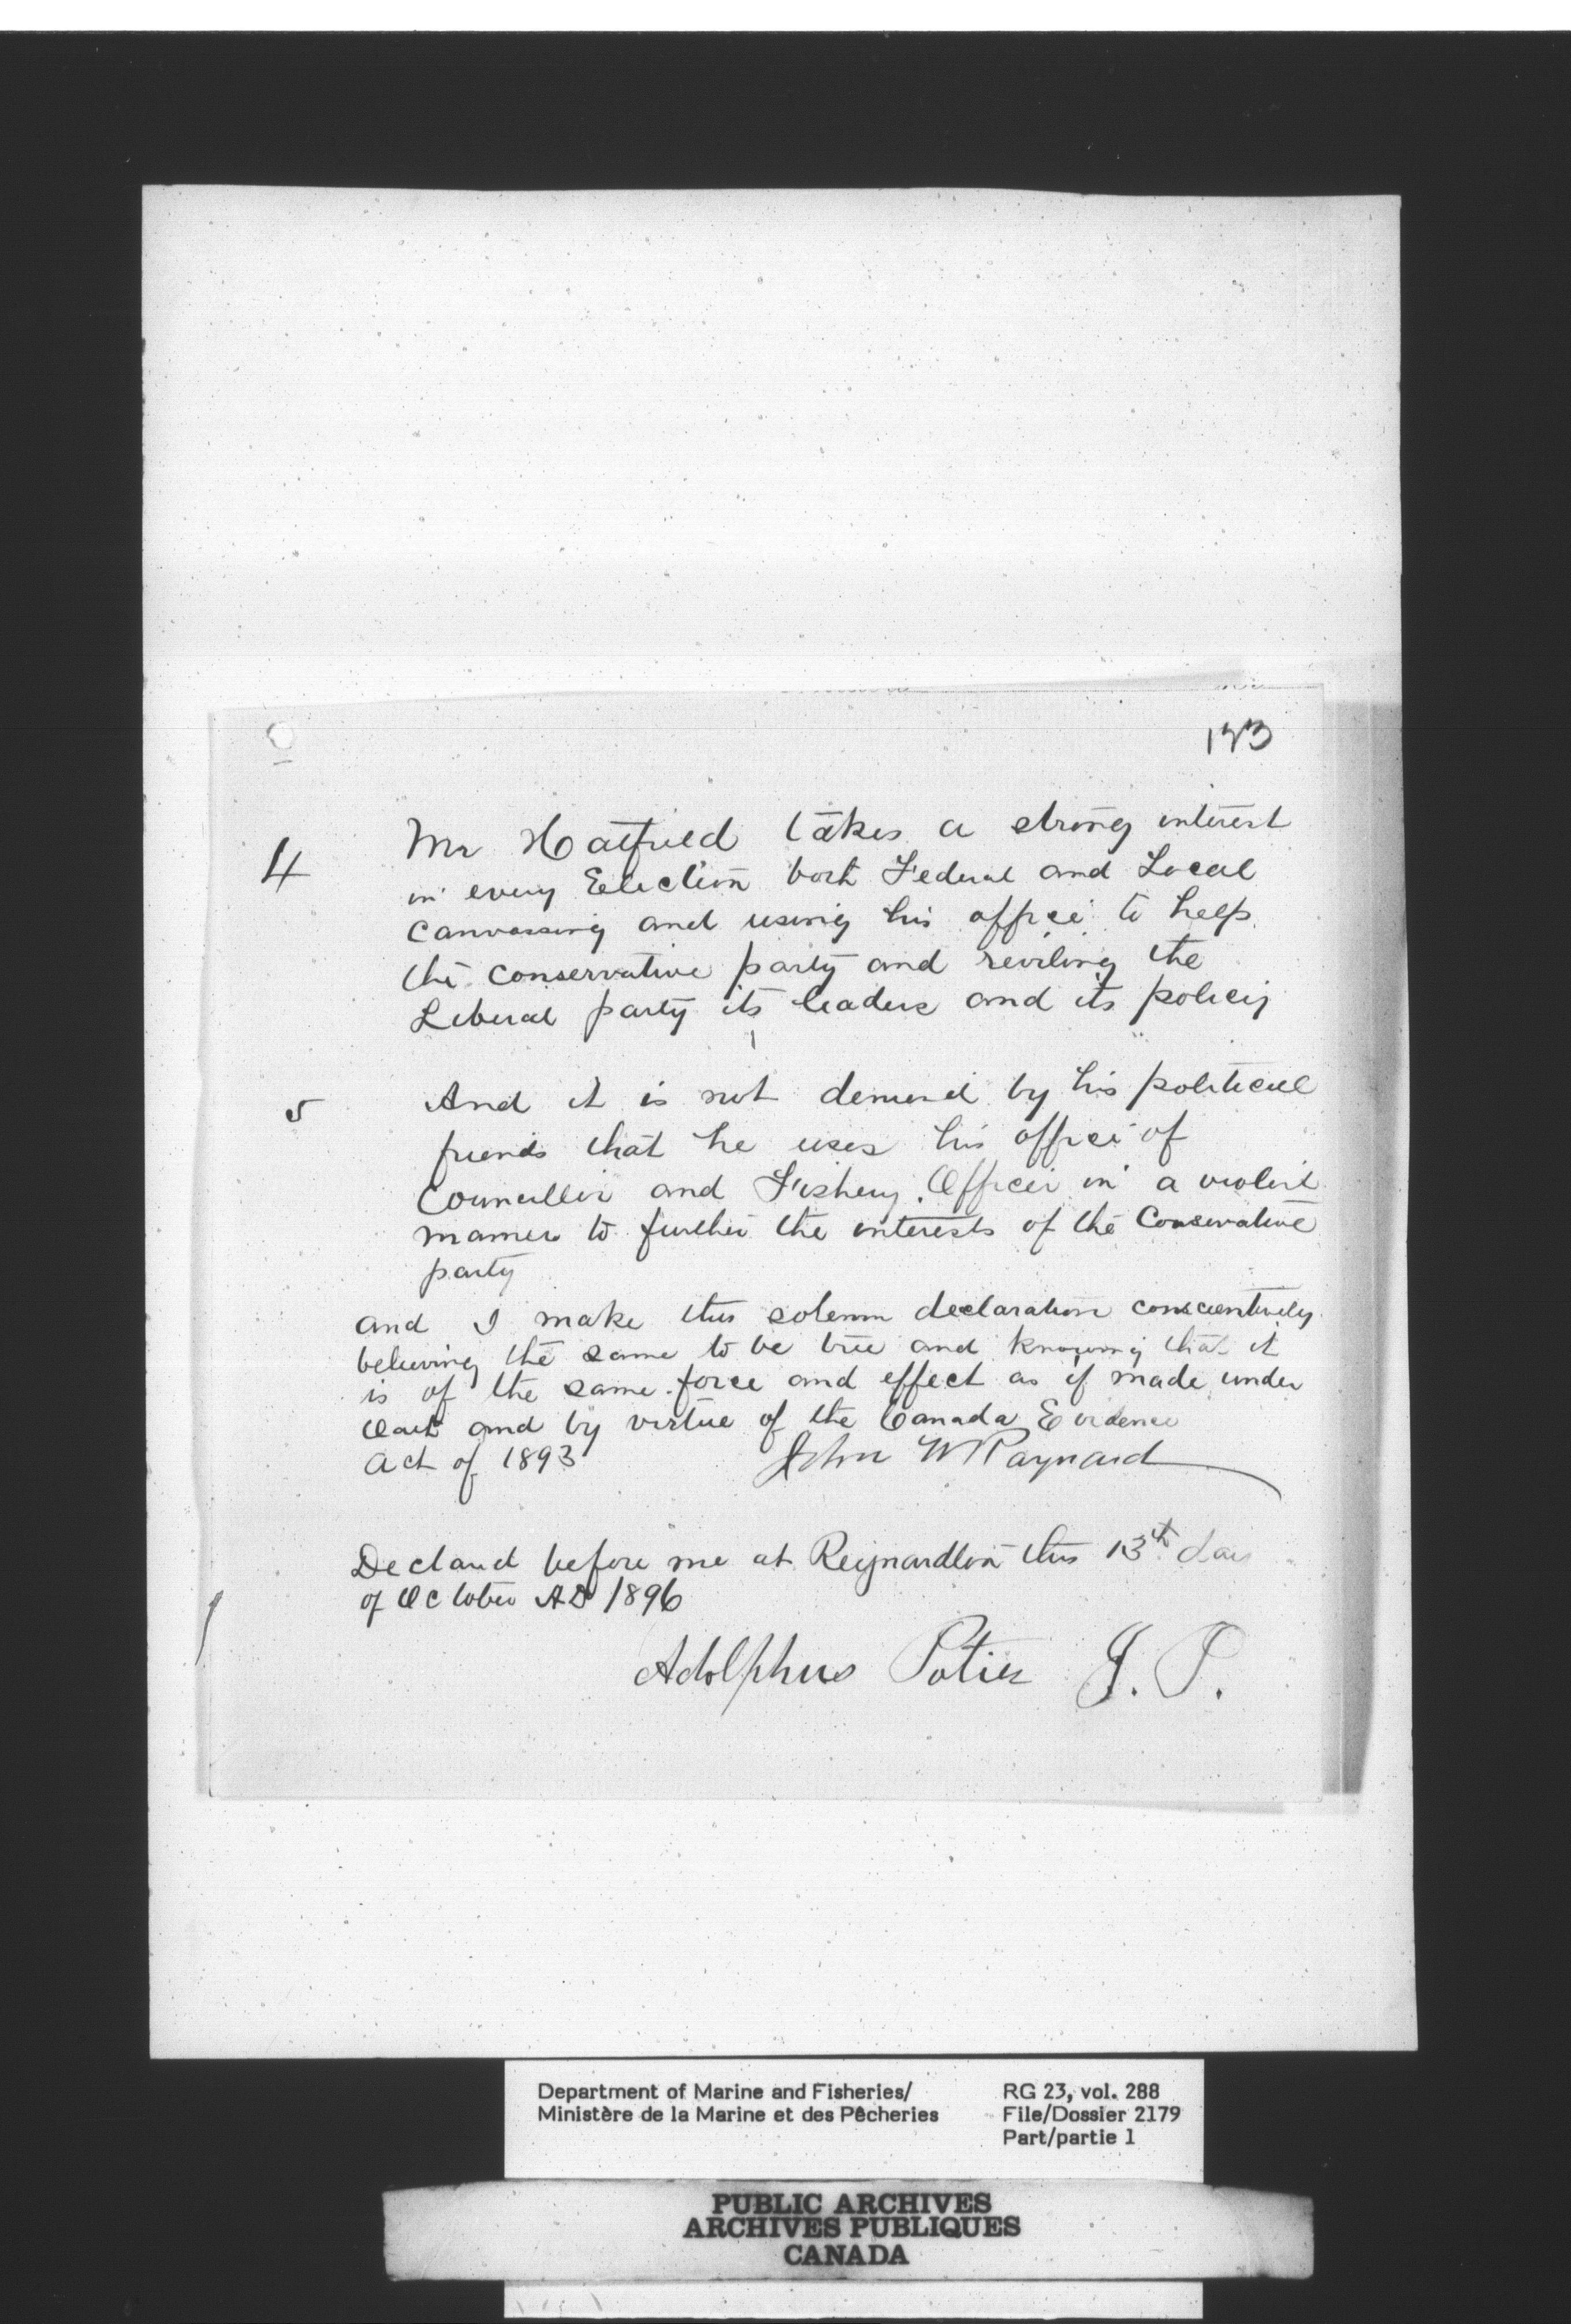 173
4 Mr Hatfield takes a strong interest
in every Election both Federal and Local
canvassing and using his office to help
the conservative party and reviling the
Liberal party its leaders and its policy
5 And it is not denied by his political
friends that he uses his office of
Councillor and Fishery Officer in a violent
manner to further the interests of the Conservative
party
and I make this solemn declaration conscientiously
believing the same to be true and knowing that it
is of the same force and effect as if made under
Oath and by virtue of the Canada Evidence
Act of 1893 John W Raynard
Declared before me at Reynardton this 13th day
of October AD 1896
Adolphus Potier J. P.
Department of Marine and Fisheries/ RG 23, vol. 288
Ministère de la Marine et des Pêcheries File/Dossier 2179
Part/partie 1
PUBLIC ARCHIVES
ARCHIVES PUBLIQUES
CANADA